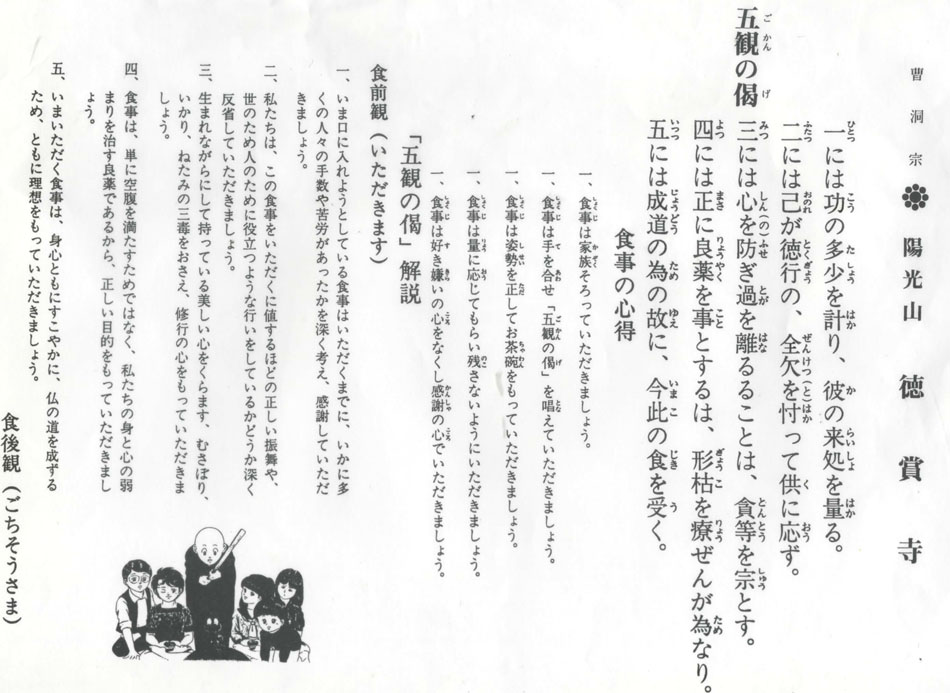 曹洞宗 陽光山 徳賞寺
五観の偈
一には功の多少を計り、彼の来処を量る。
二には己が徳行の、全欠を(と)忖って供に応ず。
三には心を(の)防ぎ過を離るることは、貪等を宗とす。
四には正に良薬を事とするは、形枯を療ぜんが為なり。
五には成道の為の故に、今此の食を受く。
食事の心得
一、食事は家族そろっていただきましょう。
一、食事は手を合せ「五観の偈」を唱えていただきましょう。
一、食事は姿勢を正してお茶碗をもっていただきましょう。
一、食事は量に応じてもらい残さないようにいただきましょう。
一、食事は好き嫌いの心をなくし感謝の心でいただきましょう。
「五観の偈」解説
食前観(いただきます)
一、いま口に入れようとしている食事はいただくまでに、いかに多
くの人々の手数や苦労があったかを深く考え、感謝していただ
きましょう。
二、私たちは、この食事をいただくに値するほどの正しい振舞や、
世のため人のために役立つような行いをしているかどうか深く
反省していただきましょう。
三、生まれながらにして持っている美しい心をくらます、むさぼり、
いかり、ねたみの三毒をおさえ、修行の心をもっていただきま
しょう。
四、食事は、単に空腹を満たすためではなく、私たちの身と心の弱
まりを治す良薬であるから、正しい目的をもっていただきまし
ょう。
五、いまいただく食事は、身心ともにすこやかに、仏の道を成ずる
ため、ともに理想をもっていただきましょう。
食後観(ごちそうさま)